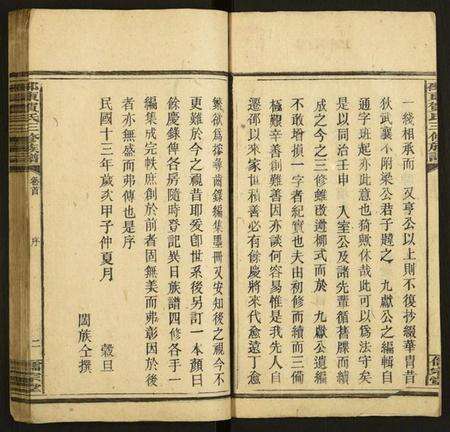 一綫相承而 叉亨公以上則不復抄綴華胄昔
狄武襄不附梁公君子韙之 九獻公之編輯自
通字班起亦此意也猗歟休哉此可以爲法守矣
是以同治壬申 入室公及諸先輩循舊牒而續
成之今之三修雖改遵鄉式而於 九獻公遺編
不敢增損一字者紀實也夫由初修而續而三備
極艱辛善創難善因亦談何容易惟是我先人自
遷邵以來家世積善必有餘慶將來代愈遠丁愈
繁欲爲 齒錄編集墨冊又安知後之視今不
更難於今之視昔耶爰卽世系後另訂一本顏曰
餘慶錄俾各房隨時登記異日族譜四修各手一
編集成完帙庶創於前者固無美而弗彰因於後
者亦無盛而弗傳也是序
民國十三年歲次甲子仲夏月 穀旦
闔族仝撰
邵東 氏三修族譜
卷首
序
二